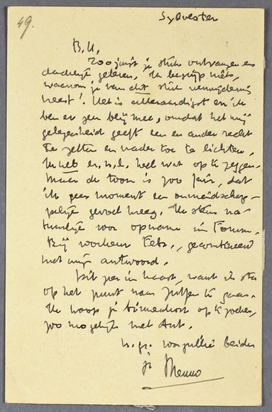 49.
Sylvester
B.H.,
Zoojuist je stuk ontvangen en
dadelijk gelezen. Ik begrijp niets,
waarom je van dit stuk verwijdering
vreest! Het is uiteraardigst en ik
ben er zeer blij mee, omdat het mij
gelegenheid geeft een en ander recht
te zetten en nader toe te lichten.
Ik heb er, n.l., heel wat op te zeggen.
Maar de toon is zoo fair, dat
ik geen moment een onvriendschap-
pelijk gevoel kreeg. Ik stem na-
tuurlijk voor opname in Forum.
Bij voorkeur Febr., gecombineerd
met mijn antwoord.
Dit per in haast, want ik sta
op het punt naar Zutfen te gaan.
Ik hoop je binnenkort op te zoeken,
zoo mogelijk met Ant.
h. gr. voor jullie beiden
je Menno